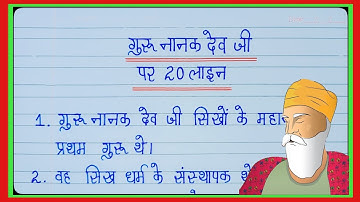 गुरू नानक देव जी
पर 20 लाइन
1. गुरू नानक देव जी सिखों के
प्रथम गुरू थे।
2. वह सिख धर्म के संस्थापक थे